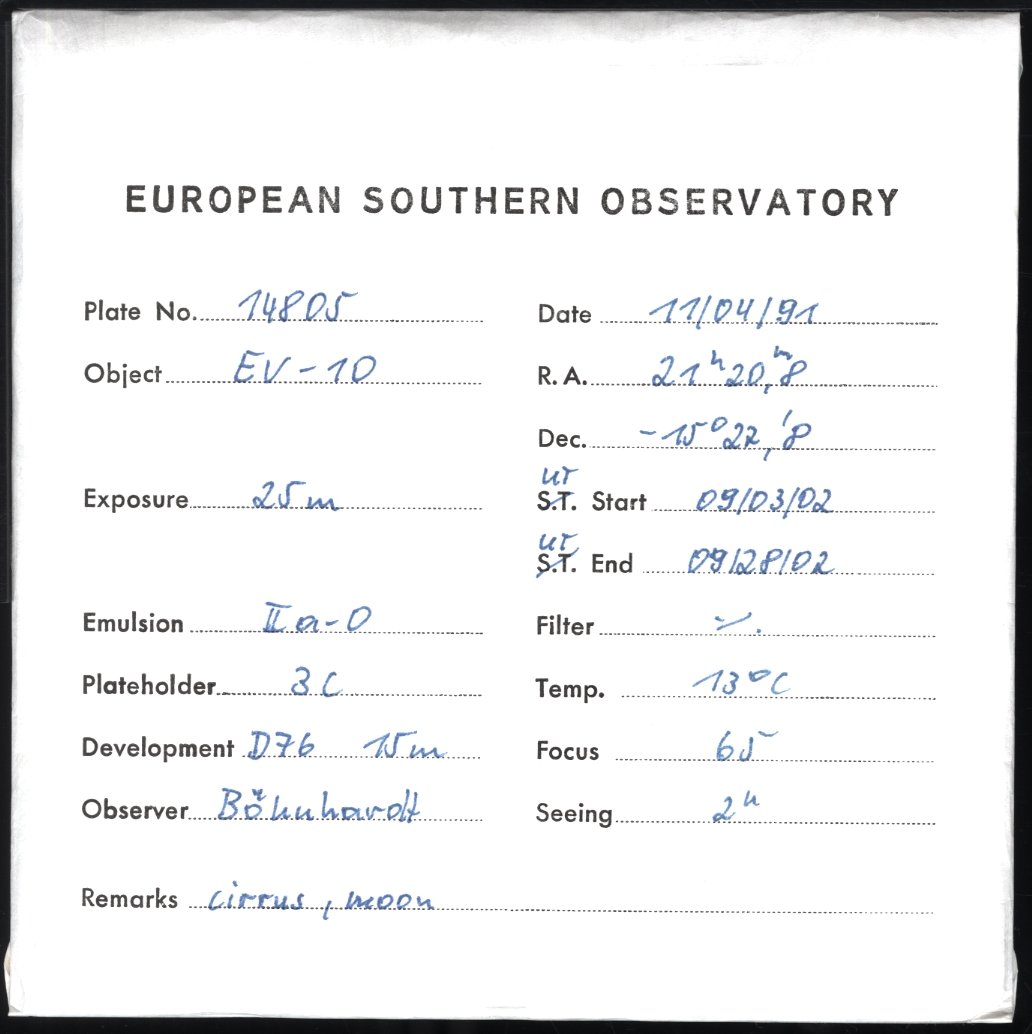 EUROPEAN SOUTHERN OBSERVATORY
Plate No. 14805
Date 11/04/91
Object EV-10
R.A. 21ʰ20,ᵐ8
Dec. -15°22,'8
UT
Exposure 25m
S.T. Start 09/03/02
UT
S.T. End 09/28/02
Emulsion IIa-O
Filter ·/.
Plateholder 3C
Temp. 13°C
Development D76 15m
Focus 65
Observer Böhnhardt
Seeing 2"
Remarks cirrus, moon